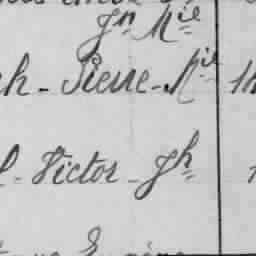 Jn Mie
h - Pierre - Mie 1
l - Victor - Jh